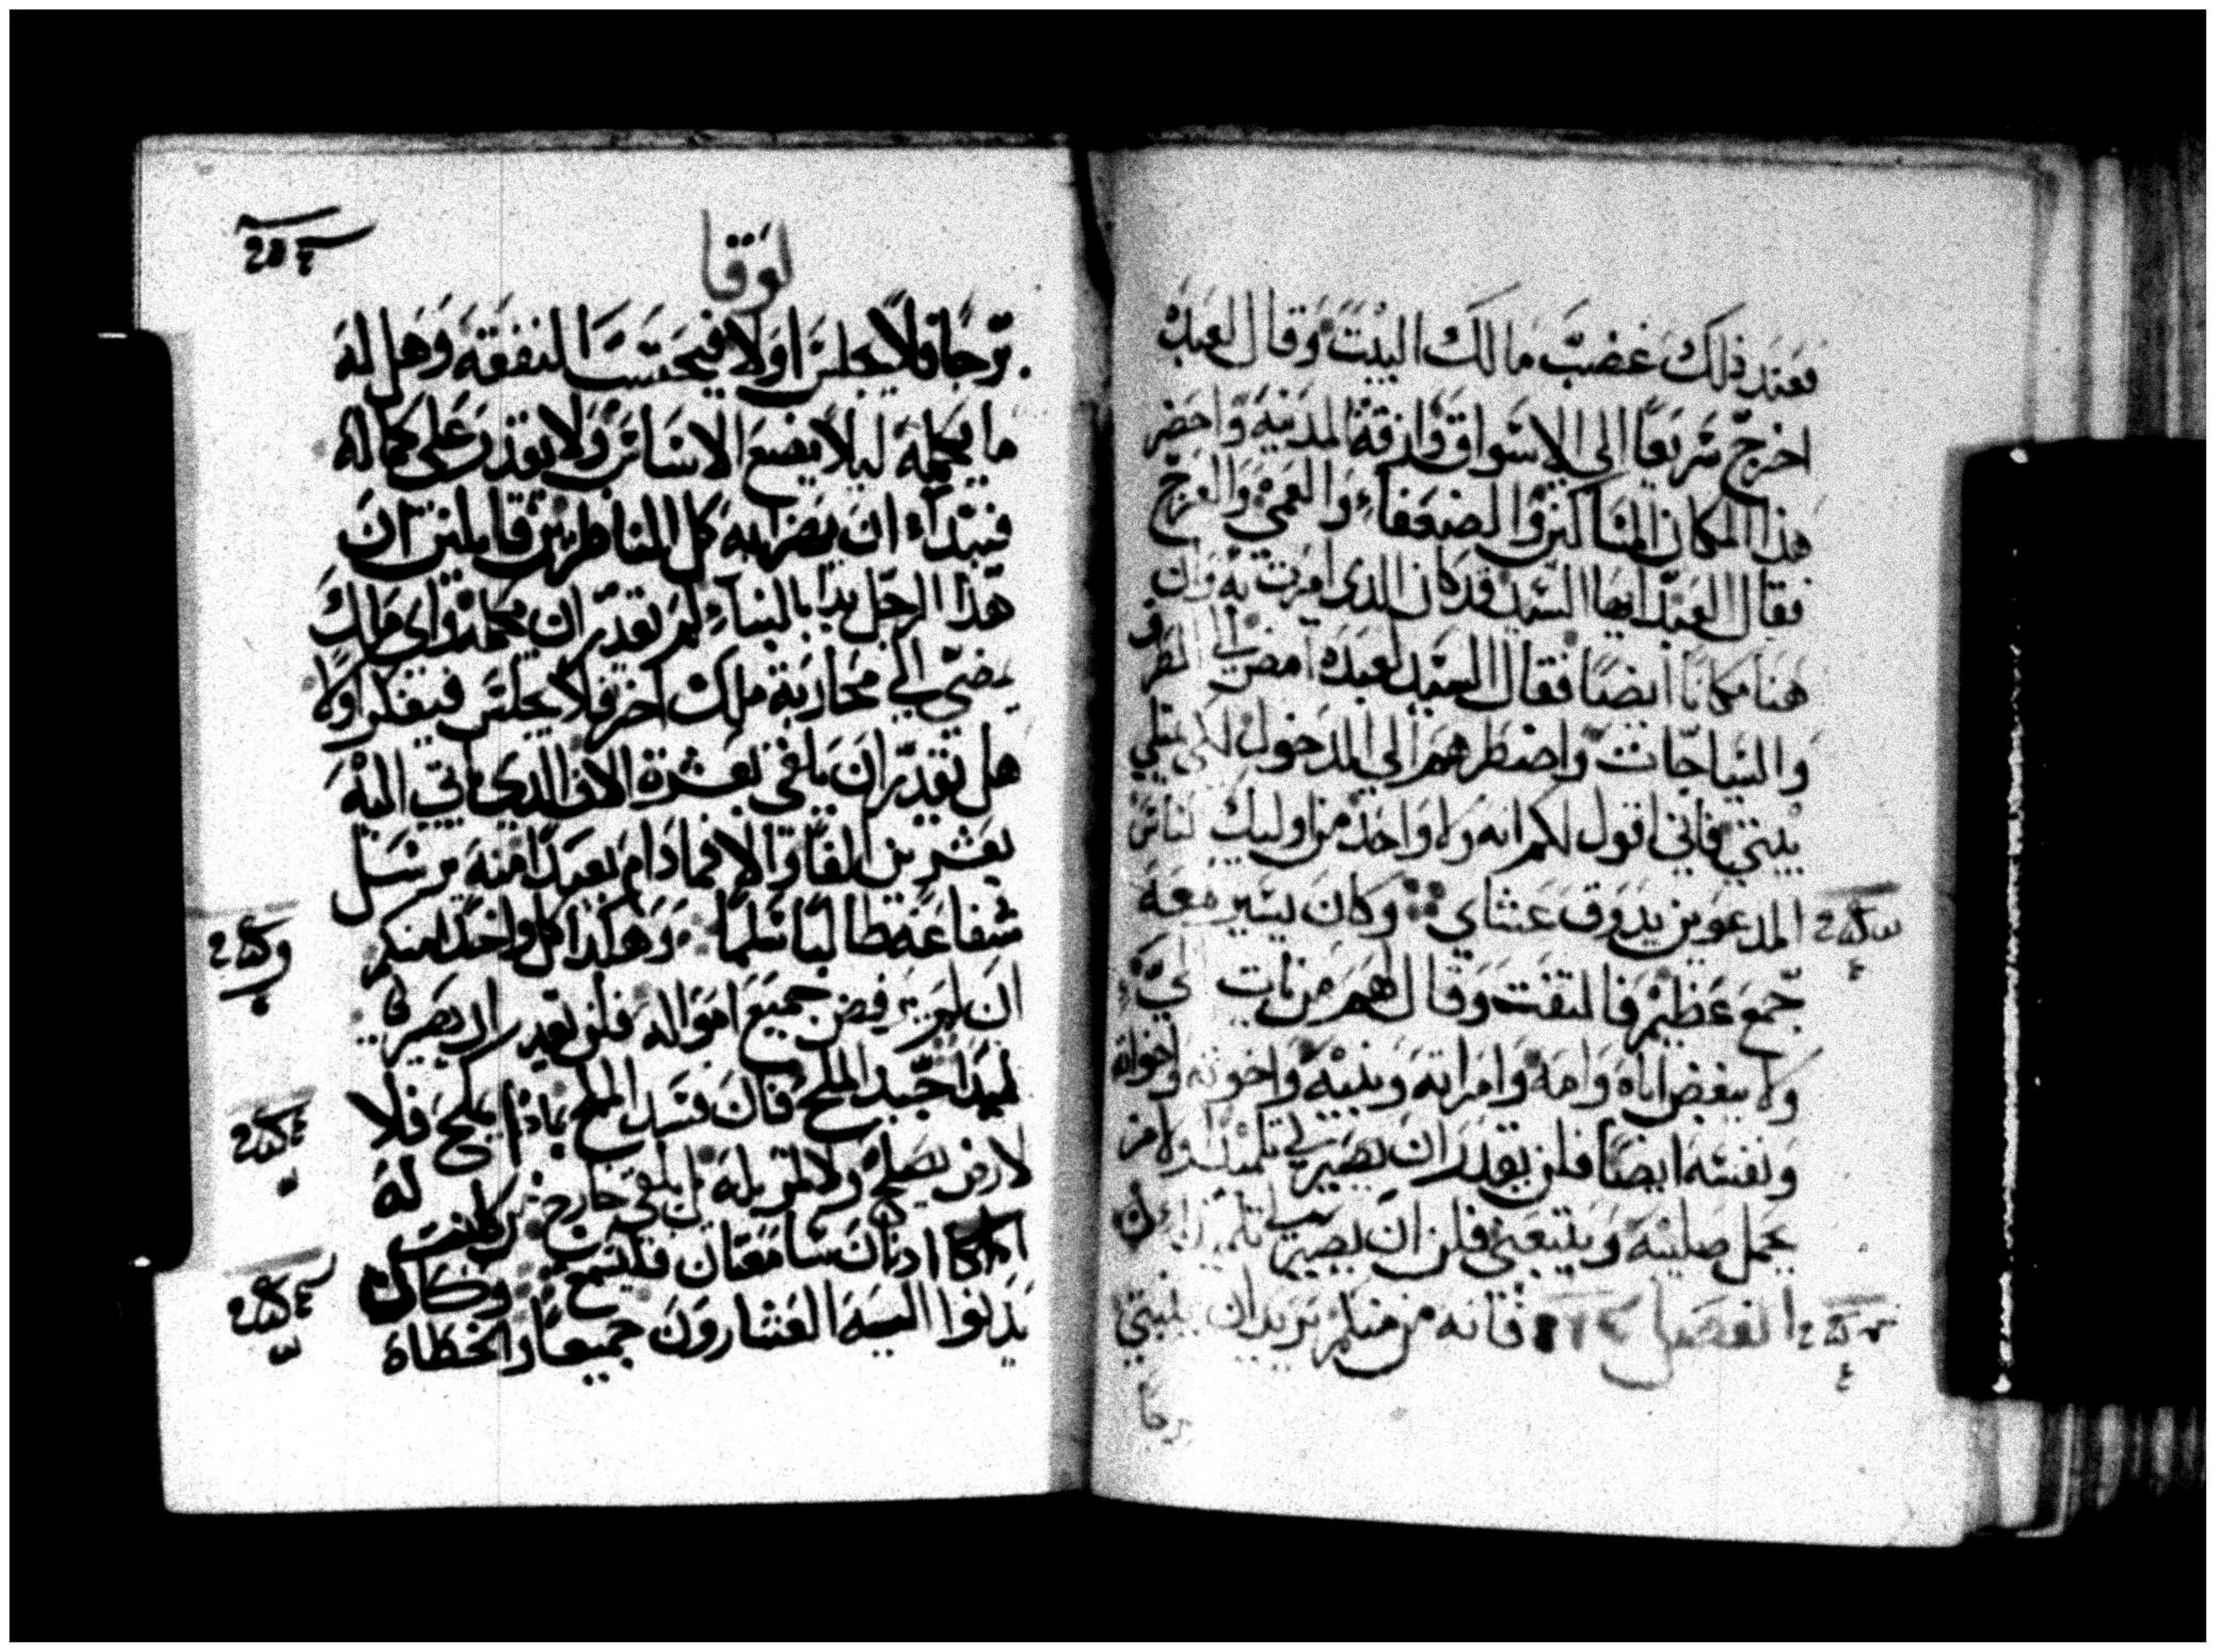 فعند ذلك غضب مالك البيت وقال لعبده
اخرج سريعا الى الاسواق وازقة المدينة واحضر
هذا المكان المساكين والضعفاء والعمي والعرج
فقال العبد ايها السيد قد كان الدى امرت به وان
هنا مكانا ايضا فقال السيد لعبده امض الى الطرق
والسياجات واضطرهم الى الدخول لكى يمتلي
بيتي فاني اقول لكم انه ولا واحد من اوليك الناس
المدعوين يدوق عشاي وكان يسير معه
جمع عظيم فالتفت وقال لهم من يات الي
ولا يبغض اباه وامه وامراته وبنيه واخوته واخواته
ونفسه ايضا فلن يقدر ان يصير لي تلميدا ولا من
يحمل صليبه ويتبعني فلن ان يصير لي تلميدا
الفصل فانه من منكم يريد ان يبني
برجا
لوقا
برجا فلا يجلس اولا فيحتسب النفقة وهل له
ما يكمله ليلا يضع الاساس ولا يقدر على كماله
فيبتداء ان يهزا به كل المناظرين قايلين ان
هذا الرجل بدا بالبناء لم يقدر ان يكمله واى ملك
يمضي الى محاربة ملك اخر فلا يجلس فيفكر اولا
هل يقدر ان يلاقي بعشرة الاف الدى ياتي اليه
بعشرين الفا والا فما دام بعيدا منه يرسل
شفاعة طالبا سلما وهكدا كل واحد منكم
ان لم يرفض جميع امواله فلن يقدر ان يصير لى
تلميدا جيد الملح فان فسد الملح بمادا يملح فلا
لارض يصلح ولا لمزبلة بل يلقى خارج من كانت له
ادنان سامعتان فليسمع وكان
يدنوا اليه العشارون جميعا والخطاة